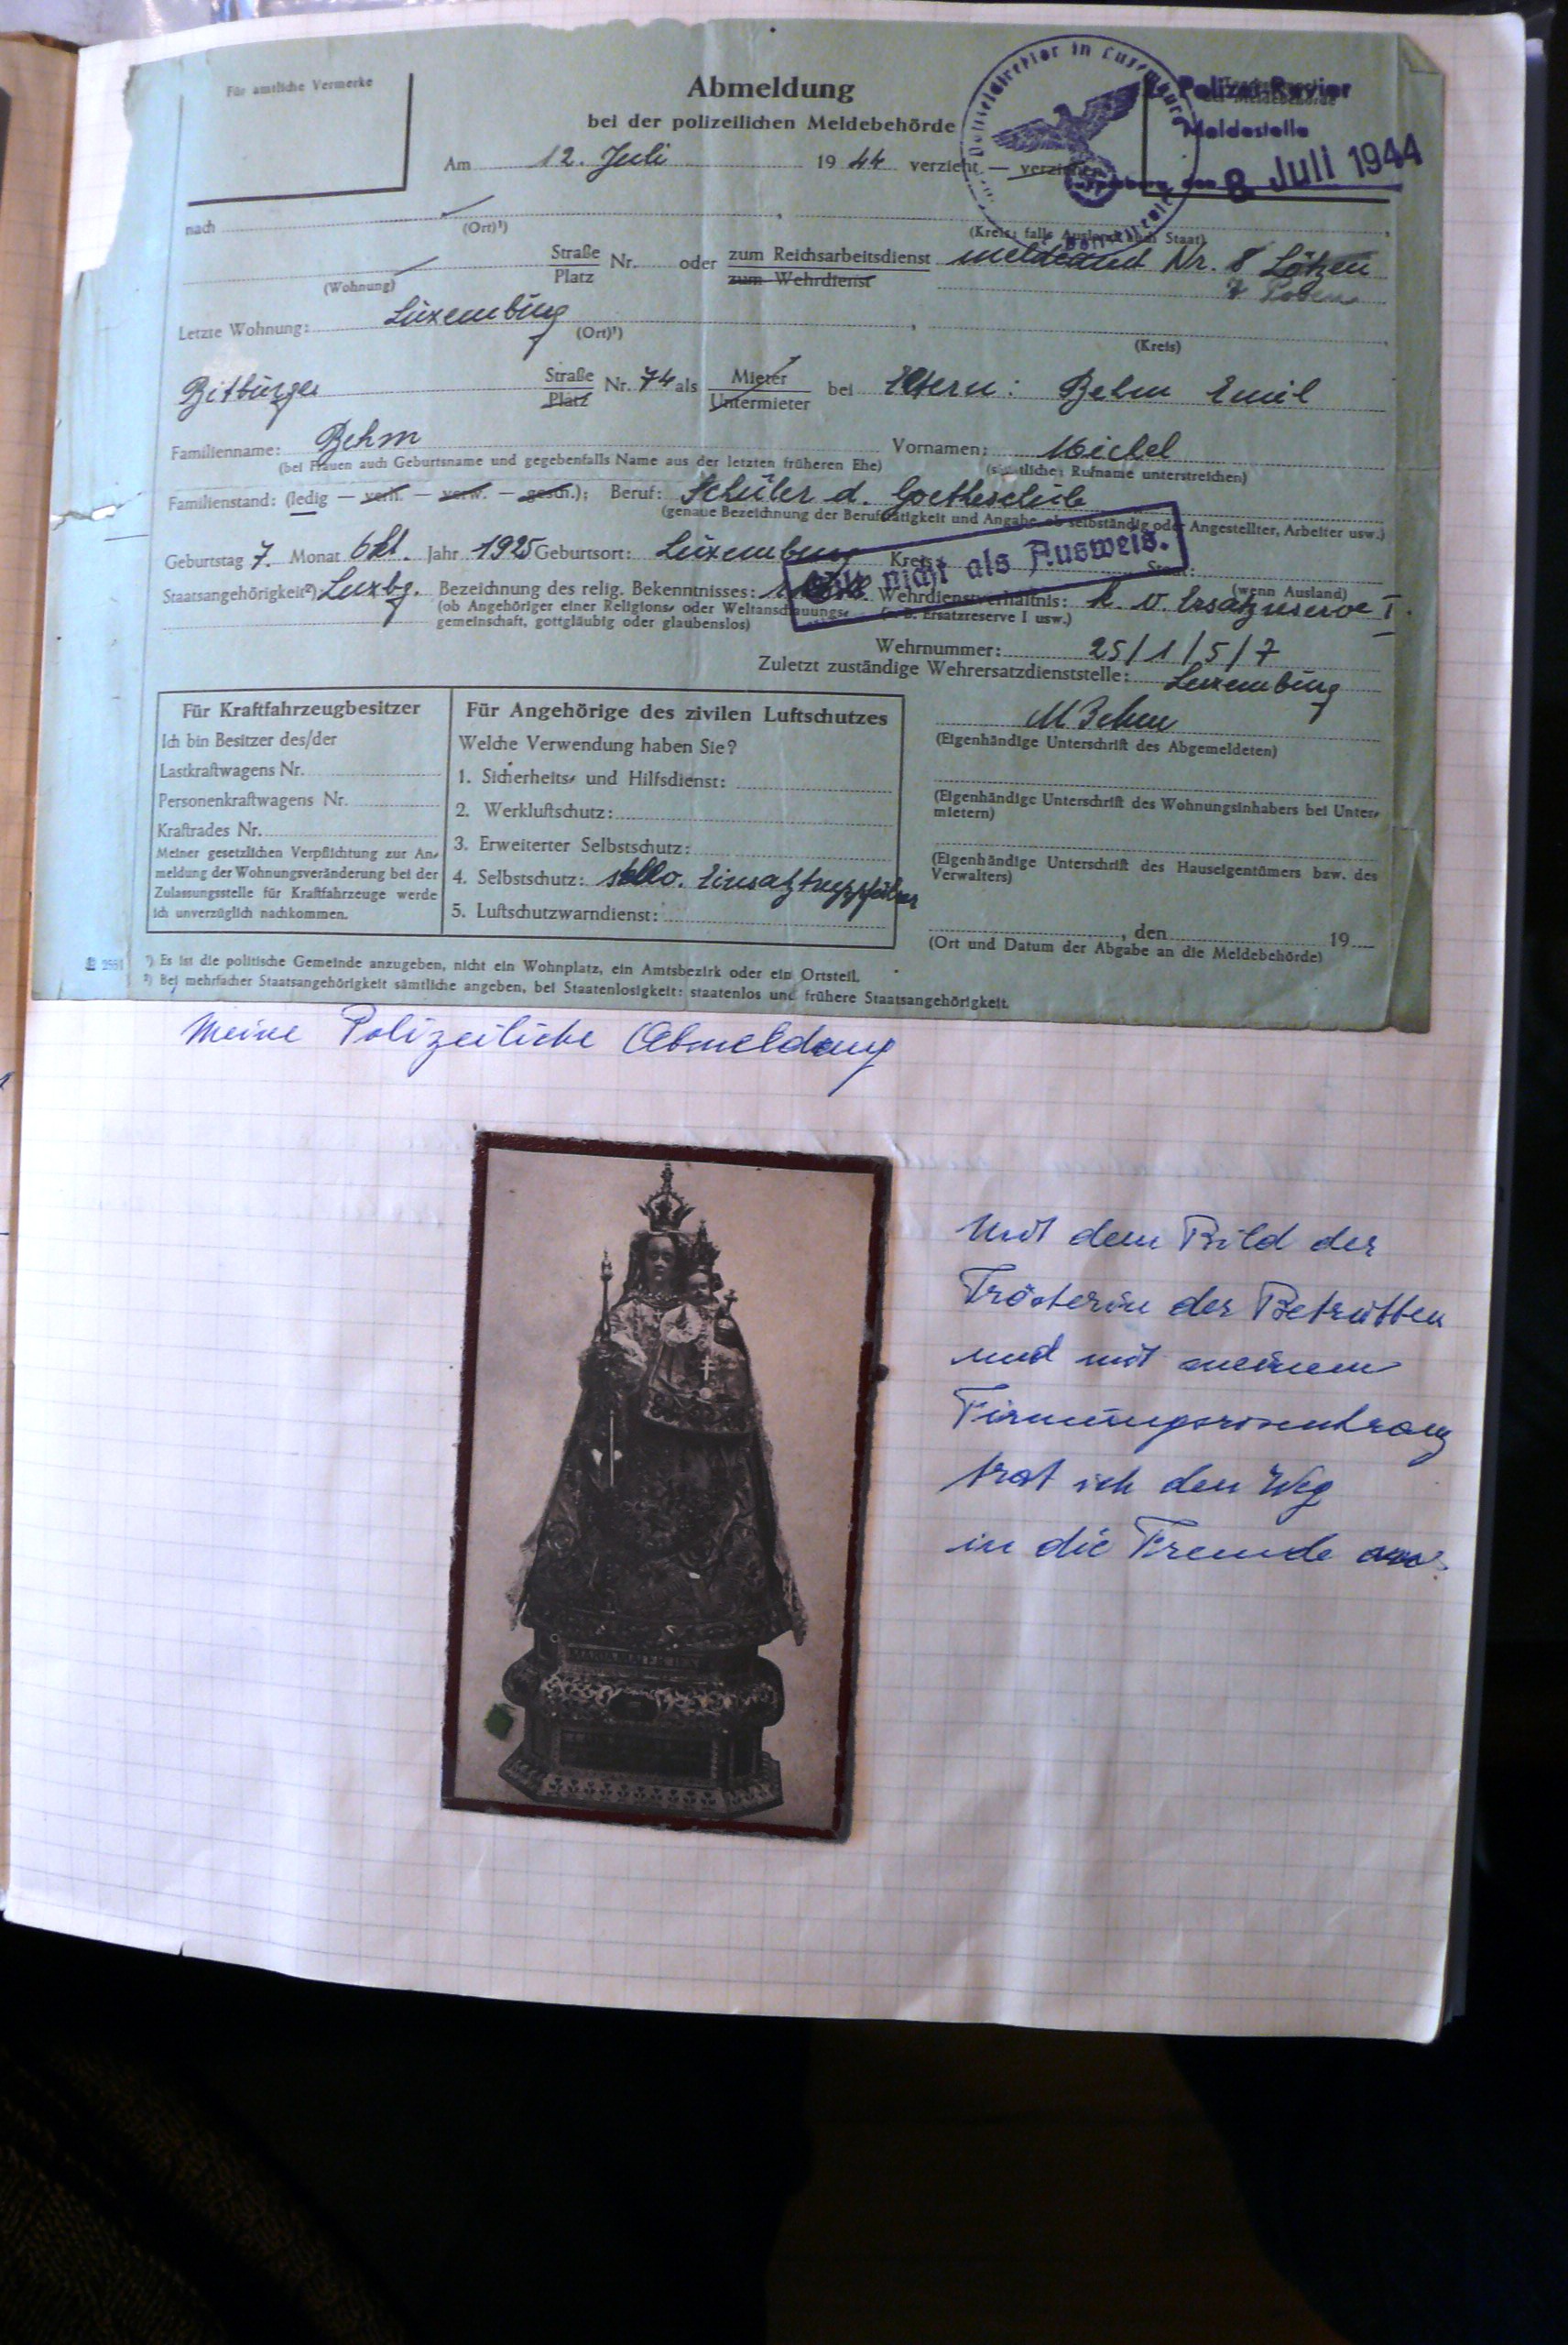 Für amtliche Vermerke
Abmeldung
bei der polizeilichen Meldebehörde
Polizeidirektor in Luxemburg
Polizei-Revier
Meldestelle
8. Juli 1944
Am 12. Juli 1944 verzieht — verzogen
nach
(Ort)¹)
(Kreis; falls Ausland auch Staat)
Straße
Platz
Nr. oder zum Reichsarbeitsdienst
zum Wehrdienst
Meldeamt Nr. 8 Lötzen
(Wohnung)
Letzte Wohnung: Luxemburg
(Ort)¹)
(Kreis)
Bitburger Straße
Platz
Nr. 74 als Mieter
Untermieter
bei Eltern: Behm Emil
Familienname: Behm Vornamen: Michel
(bei Frauen auch Geburtsname und gegebenfalls Name aus der letzten früheren Ehe) (sämtliche; Rufname unterstreichen)
Familienstand: (ledig — verh. — verw. — gesch.); Beruf: Schüler d. Goetheschule
(genaue Bezeichnung der Berufstätigkeit und Angabe, ob selbständig oder Angestellter, Arbeiter usw.)
Geburtstag 7. Monat Okt. Jahr 1925 Geburtsort: Luxemburg Kreis: Staat:
(wenn Ausland)
nicht als Ausweis.
Staatsangehörigkeit²) Luxbg. Bezeichnung des relig. Bekenntnisses: Wehrdienstverhältnis: k. v. Ersatzreserve I.
(ob Angehöriger einer Religions- oder Weltanschauungs- (z. B. Ersatzreserve I usw.)
gemeinschaft, gottgläubig oder glaubenslos)
Wehrnummer: 25/1/5/7
Zuletzt zuständige Wehrersatzdienststelle: Luxemburg
Für Kraftfahrzeugbesitzer
Ich bin Besitzer des/der
Lastkraftwagens Nr.
Personenkraftwagens Nr.
Kraftrades Nr.
Meiner gesetzlichen Verpflichtung zur An-
meldung der Wohnungsveränderung bei der
Zulassungsstelle für Kraftfahrzeuge werde
ich unverzüglich nachkommen.
Für Angehörige des zivilen Luftschutzes
Welche Verwendung haben Sie?
1. Sicherheits- und Hilfsdienst:
2. Werkluftschutz:
3. Erweiterter Selbstschutz:
4. Selbstschutz: stello. Einsatztruppführer
5. Luftschutzwarndienst:
M. Behm
(Eigenhändige Unterschrift des Abgemeldeten)
(Eigenhändige Unterschrift des Wohnungsinhabers bei Unter-
mietern)
(Eigenhändige Unterschrift des Hauseigentümers bzw. des
Verwalters)
, den 19
(Ort und Datum der Abgabe an die Meldebehörde)
¹) Es ist die politische Gemeinde anzugeben, nicht ein Wohnplatz, ein Amtsbezirk oder ein Ortsteil.
²) Bei mehrfacher Staatsangehörigkeit sämtliche angeben, bei Staatenlosigkeit: staatenlos und frühere Staatsangehörigkeit.
Meine Polizeiliche Abmeldung
Mit dem Bild der
Trösterin der Betrübten
und mit meinem
Firmungsrosenkranz
trat ich den Weg
in die Fremde an.